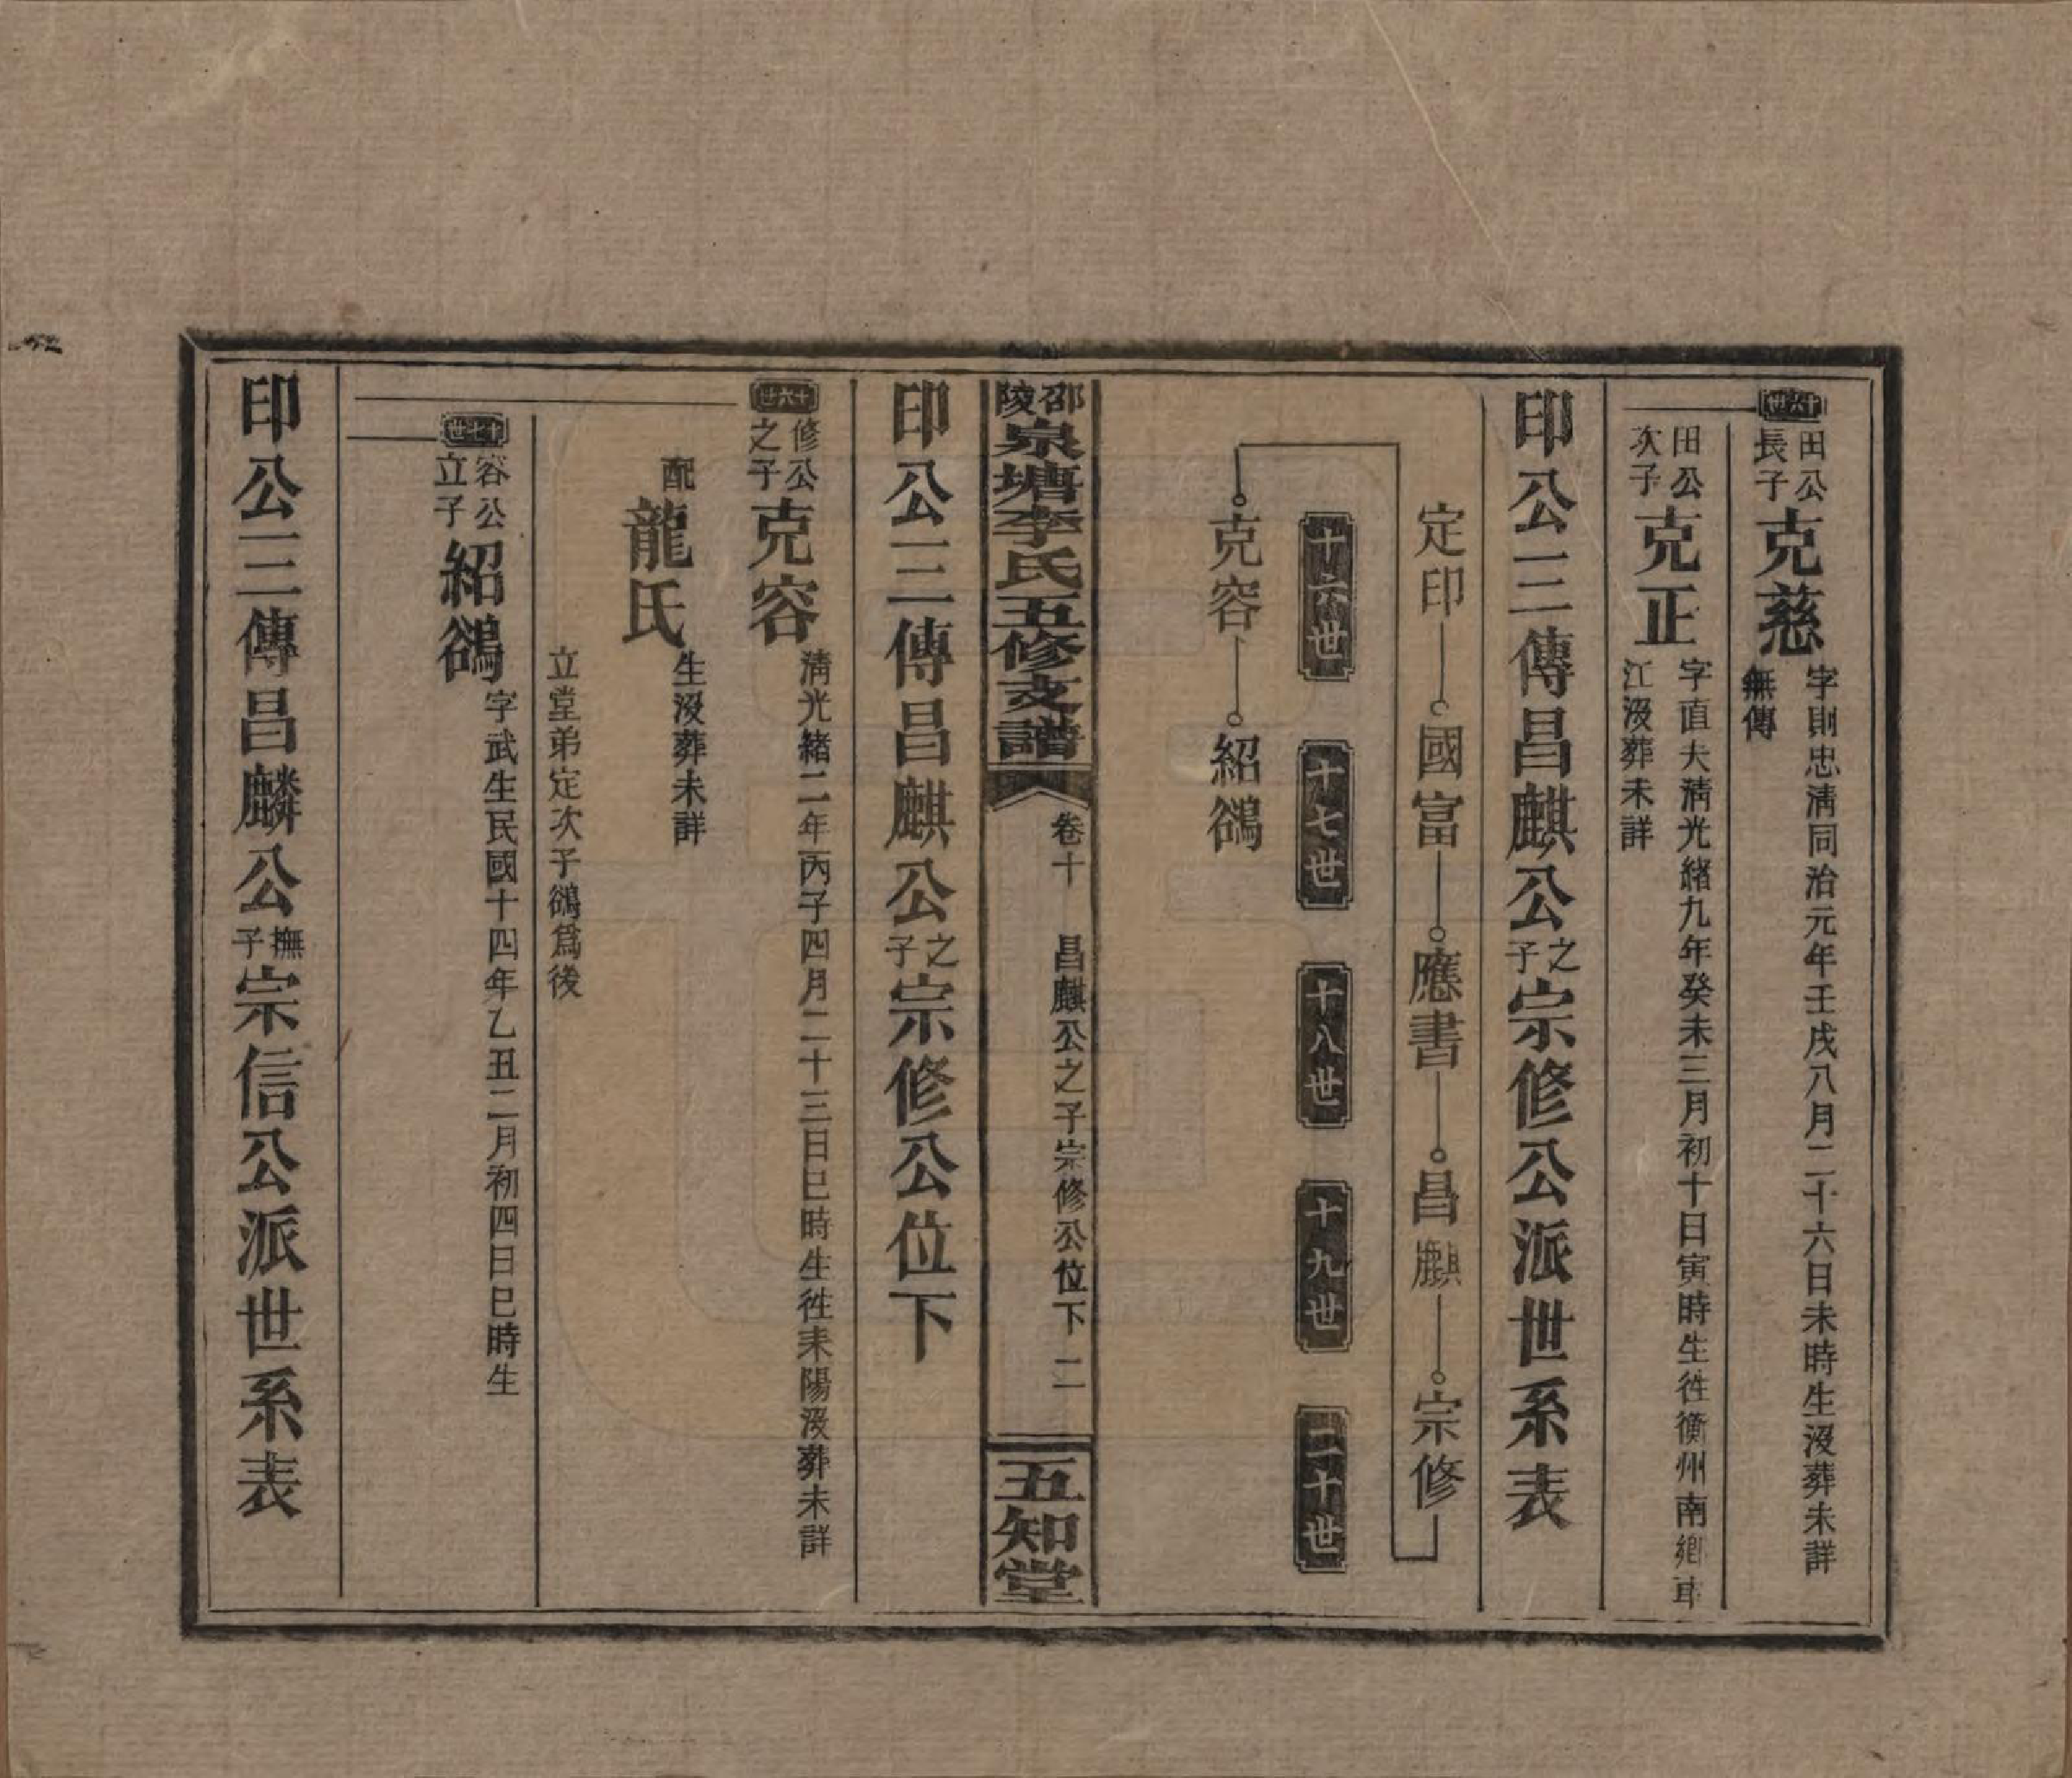 十六世
田公長子克慈
字則忠淸同治元年壬戌八月二十六日未時生沒葬未詳
無傳
田公次子克正
字直夫淸光緒九年癸未三月初十日寅時生徃衡州南鄕車
江沒葬未詳
印公三傳昌麒公之子宗修公派世系表
定印 國富 應書 昌麒 宗修
十六世 十七世 十八世 十九世 二十世
克容 紹鵮
邵陵泉塘李氏五修支譜 卷十 昌麒公之子宗修公位下 二 五知堂
印公三傳昌麒公之子宗修公位下
十六世
修公之子克容
淸光緒二年丙子四月二十三日巳時生徃耒陽沒葬未詳
配龍氏
生沒葬未詳
立堂弟定次子鵮爲後
十七世
容公立子紹鵮
字武生民國十四年乙丑二月初四日巳時生
印公三傳昌麟公撫子宗信公派世系表